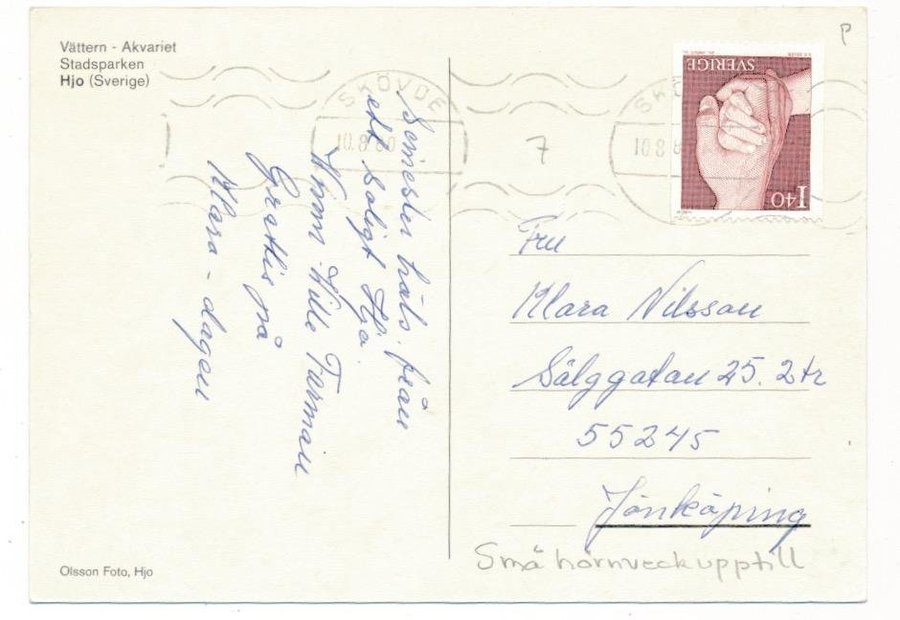 Vättern - Akvariet
Stadsparken
Hjo (Sverige)
Semester häls. från
ett soligt Hjo.
Grattis på
Klara-dagen
P
SVERIGE
1 40
SKÖVDE
SKÖ
7
Fru
Klara Nilsson
Sälggatan 25. 2 tr
55245
Jönköping
Små hörnveck upptill
Olsson Foto, Hjo